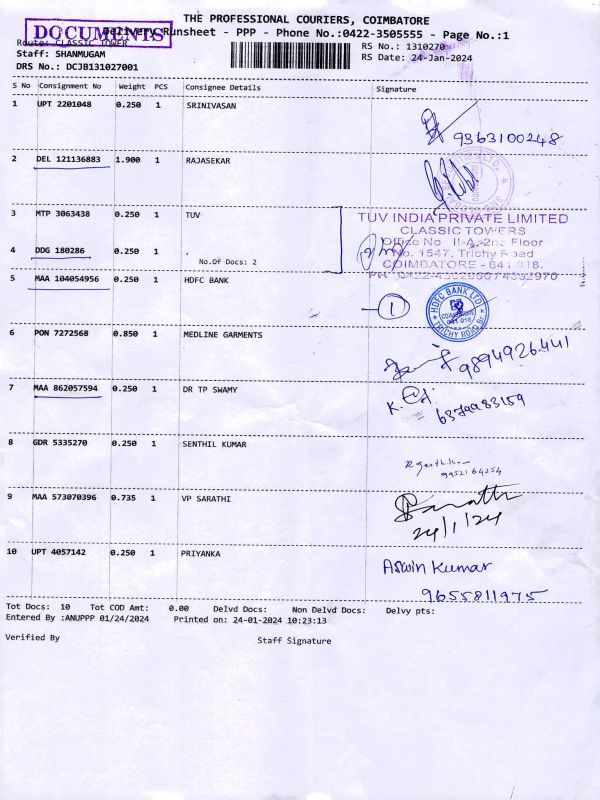 THE PROFESSIONAL COURIERS, COIMBATORE
DOCUMENTS
Delivery Runsheet - PPP - Phone No.:0422-3505555 - Page No.:1
Route: CLASSIC TOWER
RS No.: 1310270
Staff: SHANMUGAM
RS Date: 24-Jan-2024
DRS No.: DCJB131027001
S No Consignment No Weight PCS Consignee Details Signature
1 UPT 2201048 0.250 1 SRINIVASAN
9363100248
2 DEL 121136883 1.900 1 RAJASEKAR
3 MTP 3063438 0.250 1 TUV
TUV INDIA PRIVATE LIMITED
CLASSIC TOWERS
Office No II-A, 2nd Floor
No. 1547, Trichy Road
COIMBATORE - 641 018.
4 DDG 180286 0.250 1 .
No.Of Docs: 2
5 MAA 104054956 0.250 1 HDFC BANK
1
HDFC BANK LTD
TRICHY ROAD
6 PON 7272568 0.850 1 MEDLINE GARMENTS
9894926441
7 MAA 862057594 0.250 1 DR TP SWAMY
6379983159
8 GDR 5335270 0.250 1 SENTHIL KUMAR
9952164254
9 MAA 573070396 0.735 1 VP SARATHI
24/1/24
10 UPT 4057142 0.250 1 PRIYANKA
Aswin Kumar
9655811975
Tot Docs: 10 Tot COD Amt: 0.00 Delvd Docs: Non Delvd Docs: Delvy pts:
Entered By :ANUPPP 01/24/2024 Printed on: 24-01-2024 10:23:13
Verified By Staff Signature